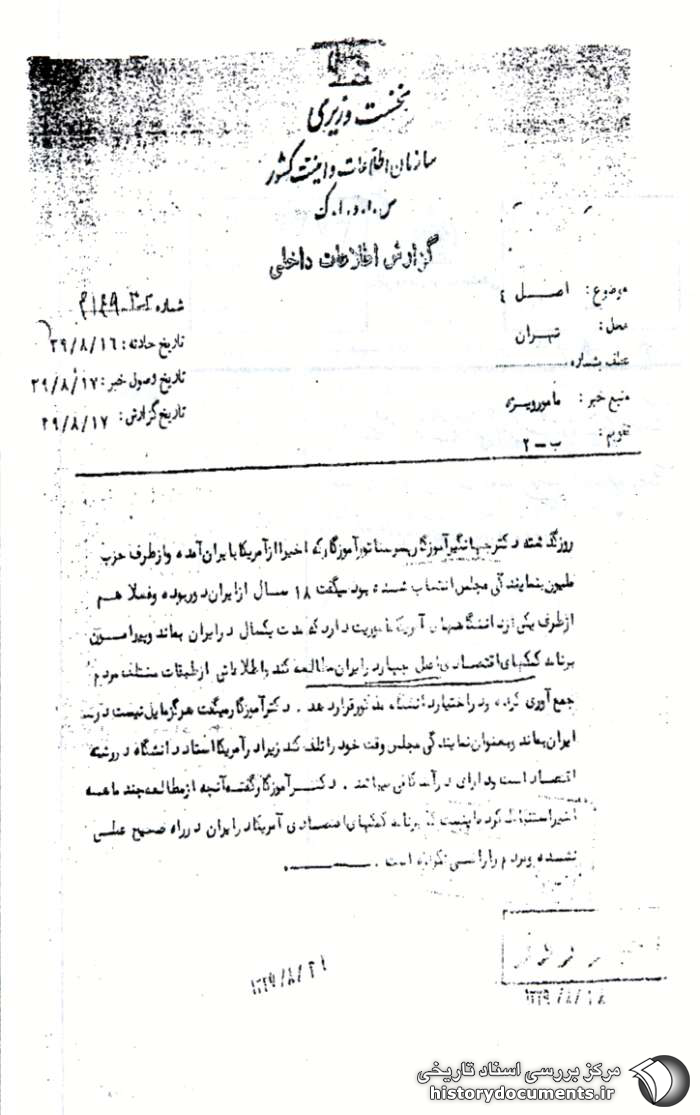 نخست وزیری
سازمان اطلاعات و امنیت کشور
س.ا.و.ا.ک
گزارش اطلاعات داخلی
موضوع: اصل ٤
محل: تهران
عطف بشماره
منبع خبر: مامورویژه
تقویم: ب-٢
شماره
تاریخ حادثه: ٣٩/٨/١٦
تاریخ وصول خبر: ٣٩/٨/١٧
تاریخ گزارش: ٣٩/٨/١٧
روزگذشته دکترجهانگیرآموزگارپسرسناتورآموزگارکه اخیرا ازآمریکا بایران آمده وازطرف حزب
ملیون بنمایندگی مجلس انتخاب شده بود میگفت ١٨ سال ازایران دوربوده وفعلا هم
ازطرف یکی ازدانشگاههای آمریکا ماموریت دارد که مدت یکسال درایران بماند وپیرامون
برنامه کمکهای اقتصادی اصل چهاردرایران مطالعه کند واطلاعاتی ازطبقات مختلف مردم
جمع آوری کرده ودراختیاردانشگاه مذکورقراردهد . دکترآموزگارمیگفت هرگزمایل نیست در
ایران بماند وبعنوان نمایندگی مجلس وقت خود راتلف کند زیرا درآمریکا استاد دانشگاه دررشته
اقتصاد است ودارای درآمد کافی میباشد . دکترآموزگارگفت آنچه ازمطالعه چند ماهه
اخیراستنباط کرده اینست که برنامه کمکهای اقتصادی آمریکا درایران درراه صحیح عملی
نشده ومردم راراضی نکرده است .
١٣٣٩/٨/٢١
مرکز بررسی اسناد تاریخی
historydocuments.ir